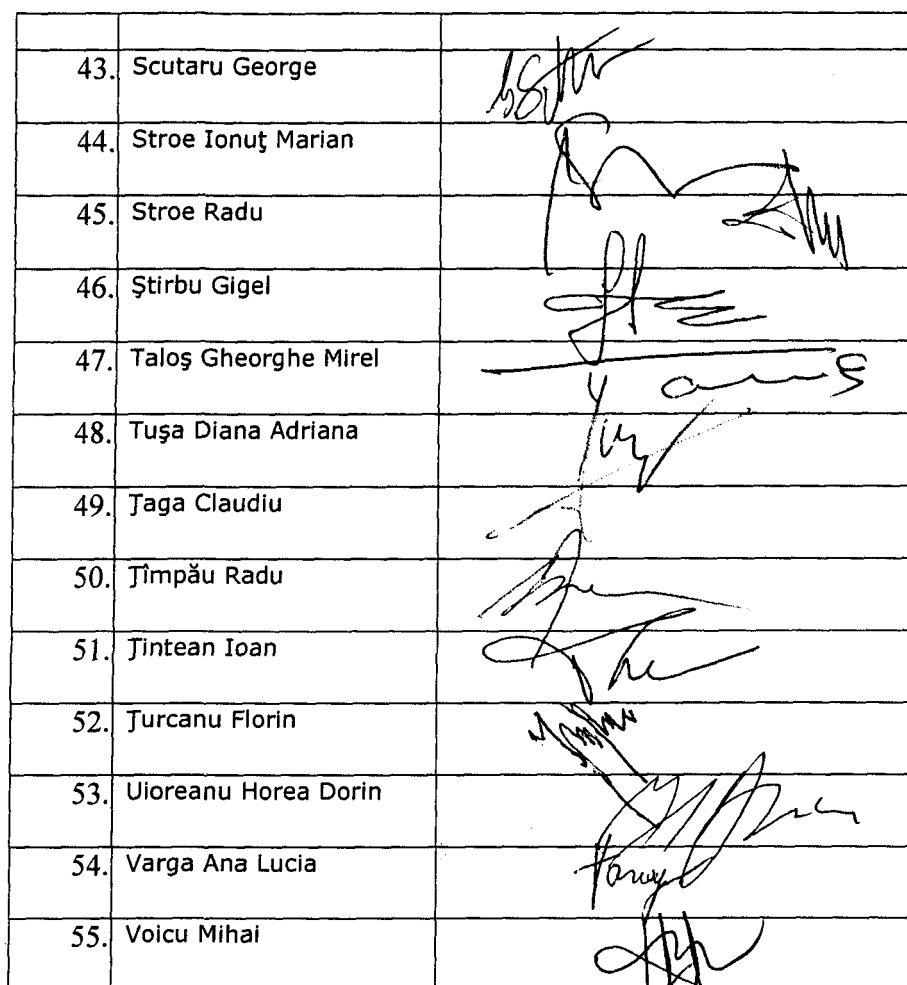 43. Scutaru George
44. Stroe Ionuţ Marian
45. Stroe Radu
46. Ştirbu Gigel
47. Taloş Gheorghe Mirel
48. Tuşa Diana Adriana
49. Ţaga Claudiu
50. Ţîmpău Radu
51. Ţintean Ioan
52. Ţurcanu Florin
53. Uioreanu Horea Dorin
54. Varga Ana Lucia
55. Voicu Mihai